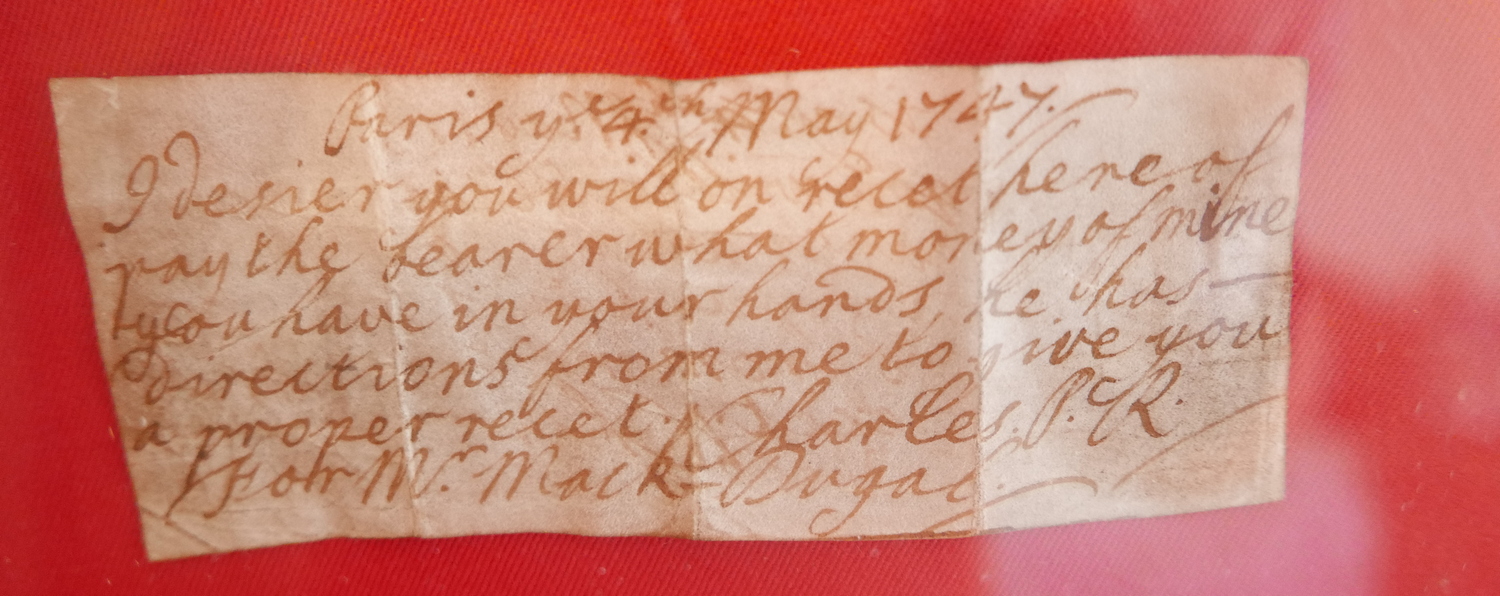 Paris y.e 4.th May 1747.
I desier you will on recet here of
pay the bearer what money of mine
you have in your hands, he has —
directions from me to give you
a proper recet. Charles. P. R.
For M.r Mack-Dugal.